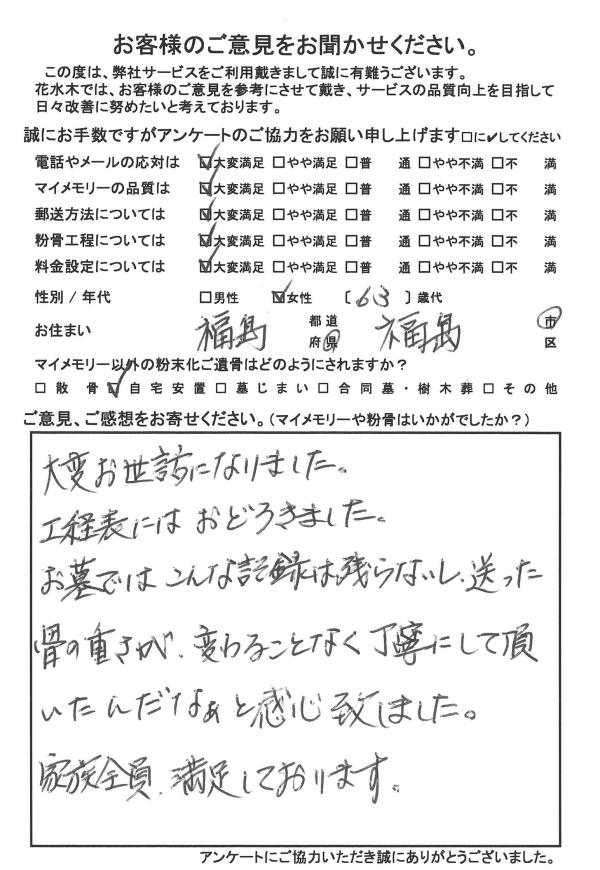 お客様のご意見をお聞かせください。
この度は、弊社サービスをご利用戴きまして誠に有難うございます。
花水木では、お客様のご意見を参考にさせて戴き、サービスの品質向上を目指して
日々改善に努めたいと考えております。
誠にお手数ですがアンケートのご協力をお願い申し上げます□に✔してください
電話やメールの応対は ☑大変満足 □やや満足 □普 通 □やや不満 □不 満
マイメモリーの品質は ☑大変満足 □やや満足 □普 通 □やや不満 □不 満
郵送方法については ☑大変満足 □やや満足 □普 通 □やや不満 □不 満
粉骨工程については ☑大変満足 □やや満足 □普 通 □やや不満 □不 満
料金設定については ☑大変満足 □やや満足 □普 通 □やや不満 □不 満
性別 / 年代 □男性 ☑女性 〔 63 〕歳代
お住まい 福島 都道府県 福島 市区
マイメモリー以外の粉末化ご遺骨はどのようにされますか？
□散 骨 ☑自宅安置 □墓じまい □合同墓・樹木葬 □その他
ご意見、ご感想をお寄せください。（マイメモリーや粉骨はいかがでしたか？）
大変お世話になりました。
工程表には おどろきました。
お墓では こんな記録は残らないし、送った
骨の重さが、変わることなく丁寧にして頂
いたんだなぁと感心致しました。
家族全員、満足しております。
アンケートにご協力いただき誠にありがとうございました。